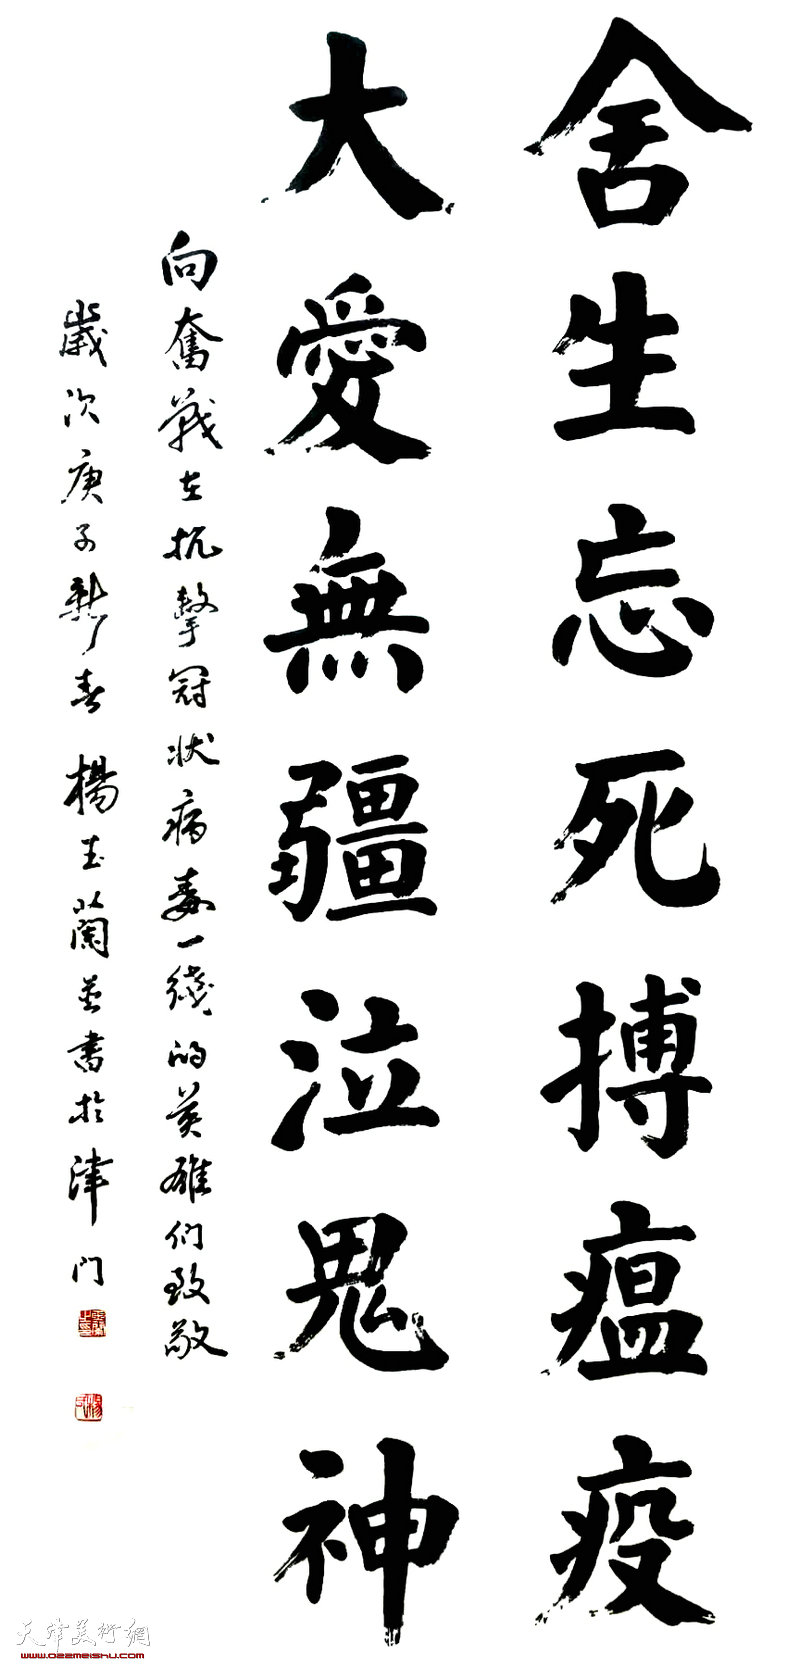 舍生忘死搏瘟疫
大愛無疆泣鬼神
向奮戰在抗擊冠狀病毒一綫的英雄们致敬
歲次庚子新春楊玉蘭並書於津门
天津美術網
www.022meishu.com